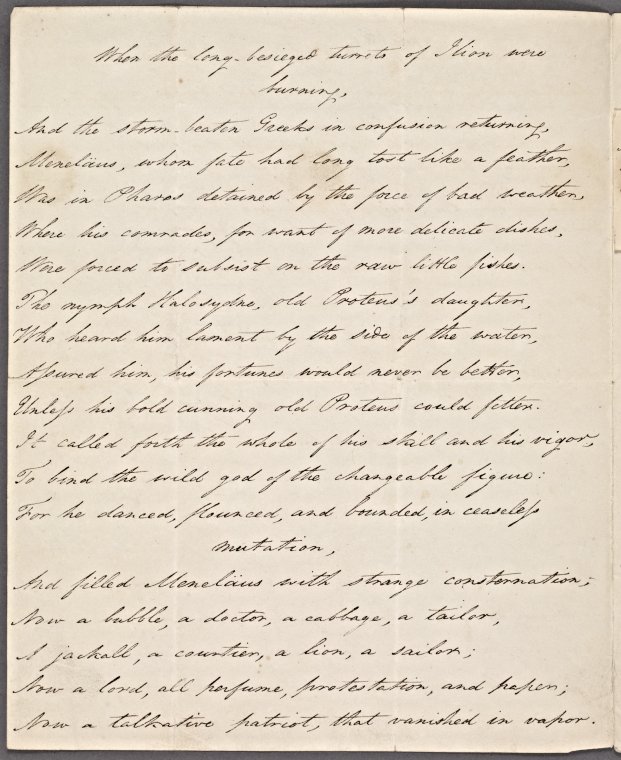 When the long-besieged turrets of Ilion were
burning,
And the storm-beaten Greeks in confusion returning,
Meneläus, whom fate had long tost like a feather,
Was in Pharos detained by the force of bad weather,
Where his comrades, for want of more delicate dishes,
Were forced to subsist on the raw little fishes.
The nymph Halosydne, old Proteus's daughter,
Who heard him lament by the side of the water,
Aſsured him, his fortunes would never be better,
Unleſs his bold cunning old Proteus could fetter.
It called forth the whole of his skill and his vigor,
To bind the wild god of the changeable figure:
For he danced, flounced, and bounded, in ceaseleſs
mutation,
And filled Meneläus with strange consternation;
Now a bubble, a doctor, a cabbage, a tailor,
A jackall, a courtier, a lion, a sailor;
Now a lord, all perfume, protestation, and paper;
Now a talkative patriot, that vanished in vapor.